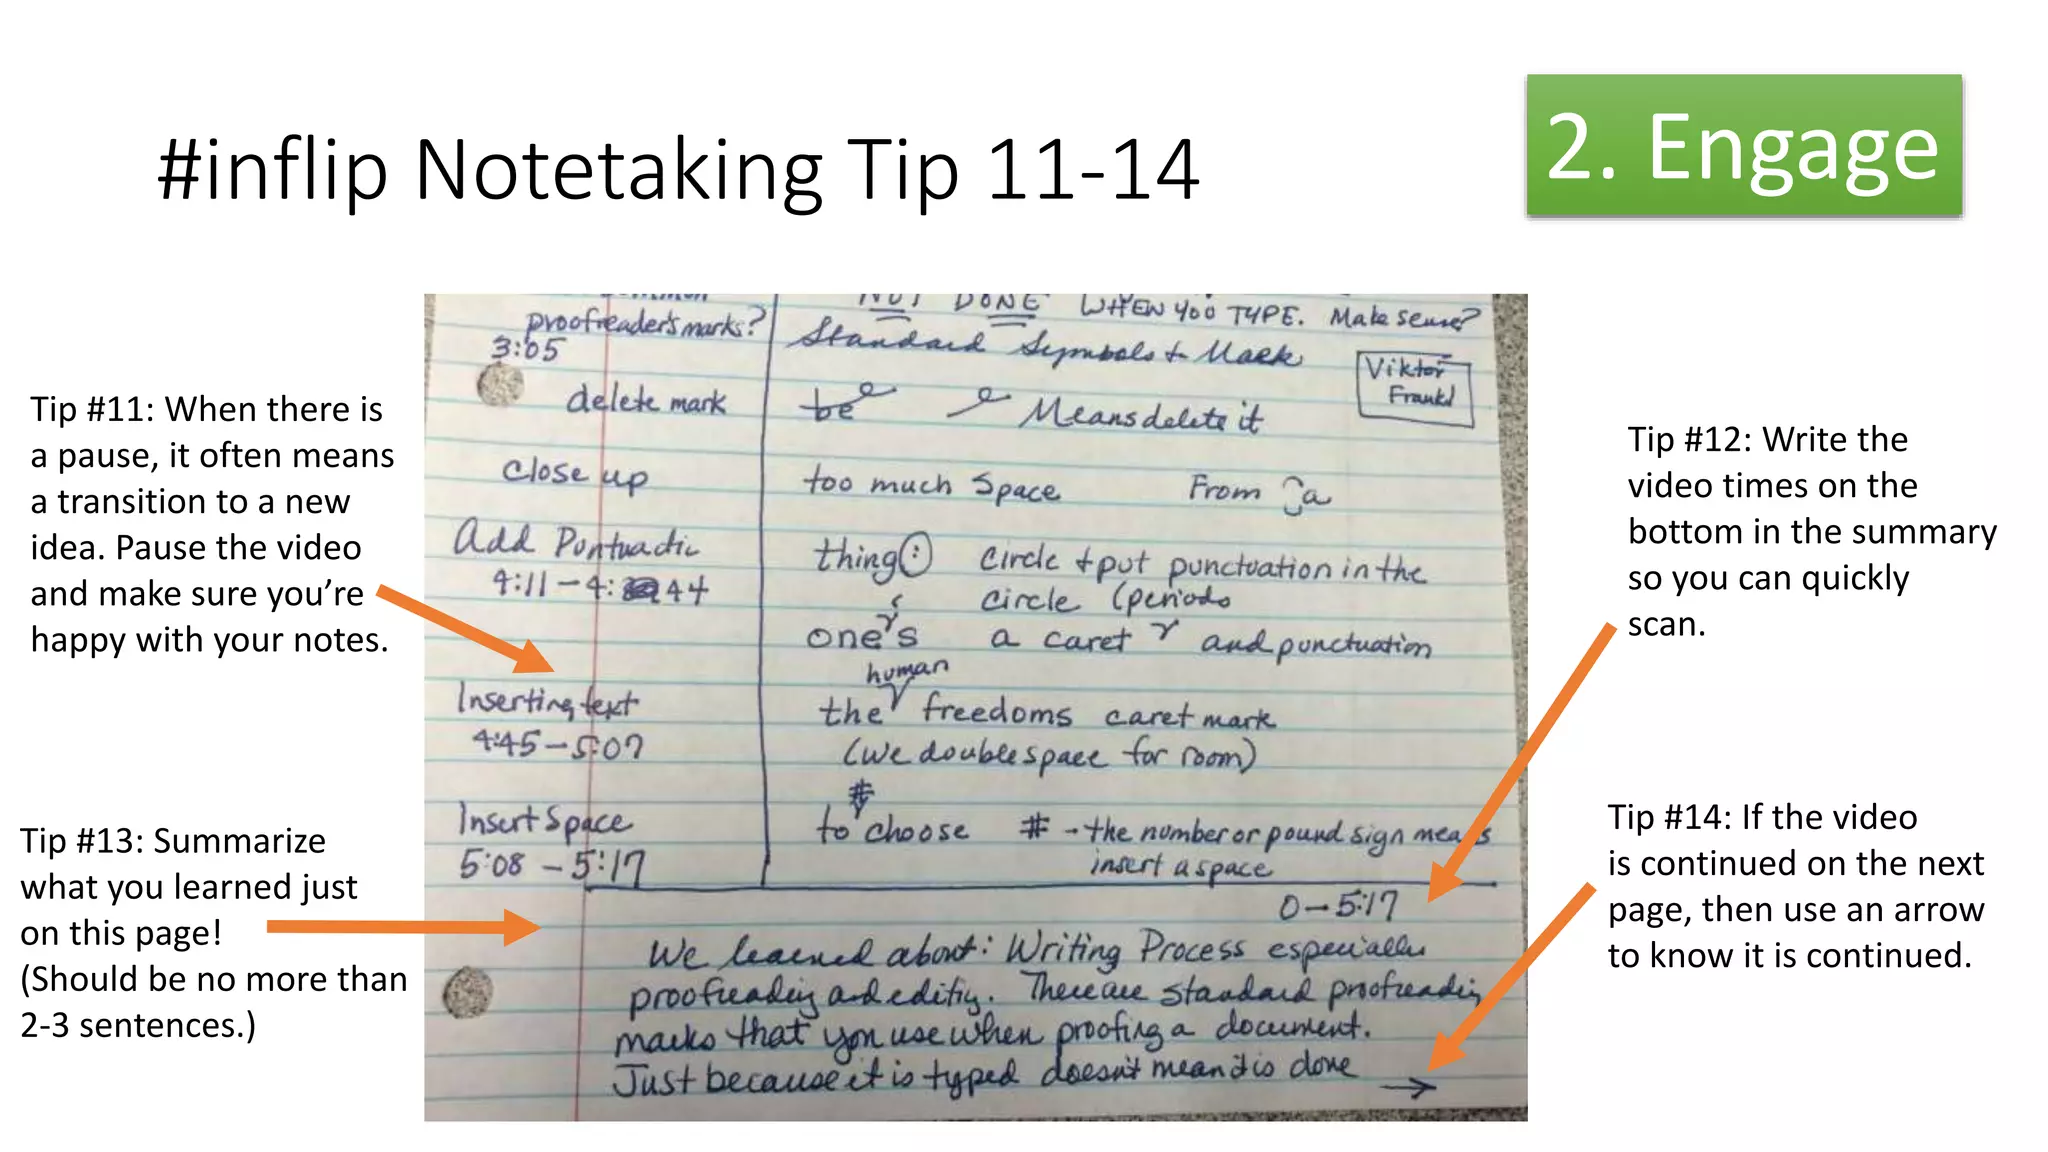 #inflip Notetaking Tip 11-14
2. Engage
Tip #11: When there is
a pause, it often means
a transition to a new
idea. Pause the video
and make sure you’re
happy with your notes.
Tip #13: Summarize
what you learned just
on this page!
(Should be no more than
2-3 sentences.)
proofreader's marks?
3:05
delete mark
close up
Add Pontuactic
4:11 – 4: 44
Inserting text
4:45 – 5:07
Insert Space
5:08 – 5:17
NOT DONE WHEN YOU TYPE. Make sense?
Standard Symbols to Mark
Viktor
Frankl
be Means delete it
too much Space From a
thing: circle + put punctuation in the
circle (periods
one's a caret and punctuation
human
the freedoms caret mark
(we double space for room)
#
to choose # - the number or pound sign means
insert a space
0 – 5:17
We learned about: Writing Process especially
proofreading and editig. There are standard proofreading
marks that you use when proofing a document.
Just because it is typed doesn't mean it is done →
Tip #12: Write the
video times on the
bottom in the summary
so you can quickly
scan.
Tip #14: If the video
is continued on the next
page, then use an arrow
to know it is continued.